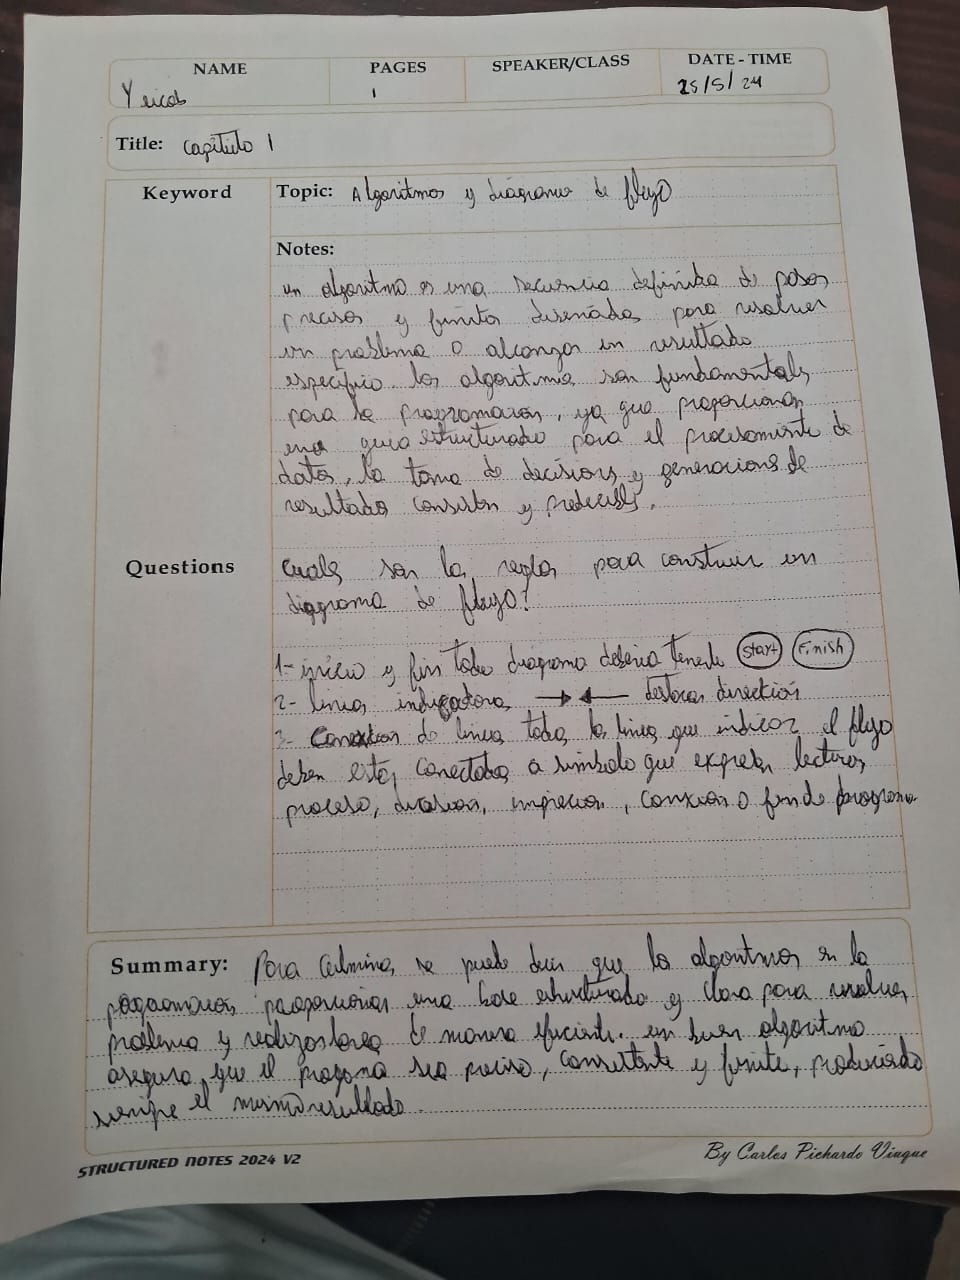 NAME PAGES SPEAKER/CLASS DATE - TIME
Yeicob 1 25/5/24
Title: Capitulo 1
Keyword
Topic: Algoritmos y diagrama de flujo
Notes:
un algoritmo es una secuencia definida de pasos
precisos y finitos diseñados para resolver
un problema o alcanzar un resultado
especifico los algoritmos son fundamentals
para la programación, ya que proporcionan
una guia estructurado para el procesamiento de
datos, la toma de decisions y generacions de
resultados y
Questions
Cuales son las reglas para construir un
diagrama de flujo?
1- inicio y fin todo diagrama deberia tenerlo Start Finish
2- lineas indicadoras direction
3- Conexion de lineas todas las lineas que indicar el flujo
deben estar conectadas a simbolo que expresen lectura,
proceso, decision, impresion, conexion o fin de programa
Summary: Para culminar, se puede decir que los algoritmos en la
programacion, proporcionar una base estructurado y clara para resolver
problema y realizar tareas de manera eficiente. un buen algoritmo
asegura, que el programa sea preciso, consistente y finito, produciendo
siempre el mismo resultado.
STRUCTURED NOTES 2024 V2
By Carlos Pichardo Viuque